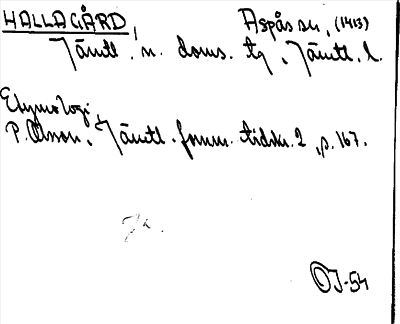 HALLAGÅRD, Aspås sn, (1413)
Jämtl. n. doms. tg, Jämtl. l.
Etymologi:
P. Olsson, Jämtl. fornm. tidskr. 2, p. 167.
OJ-54